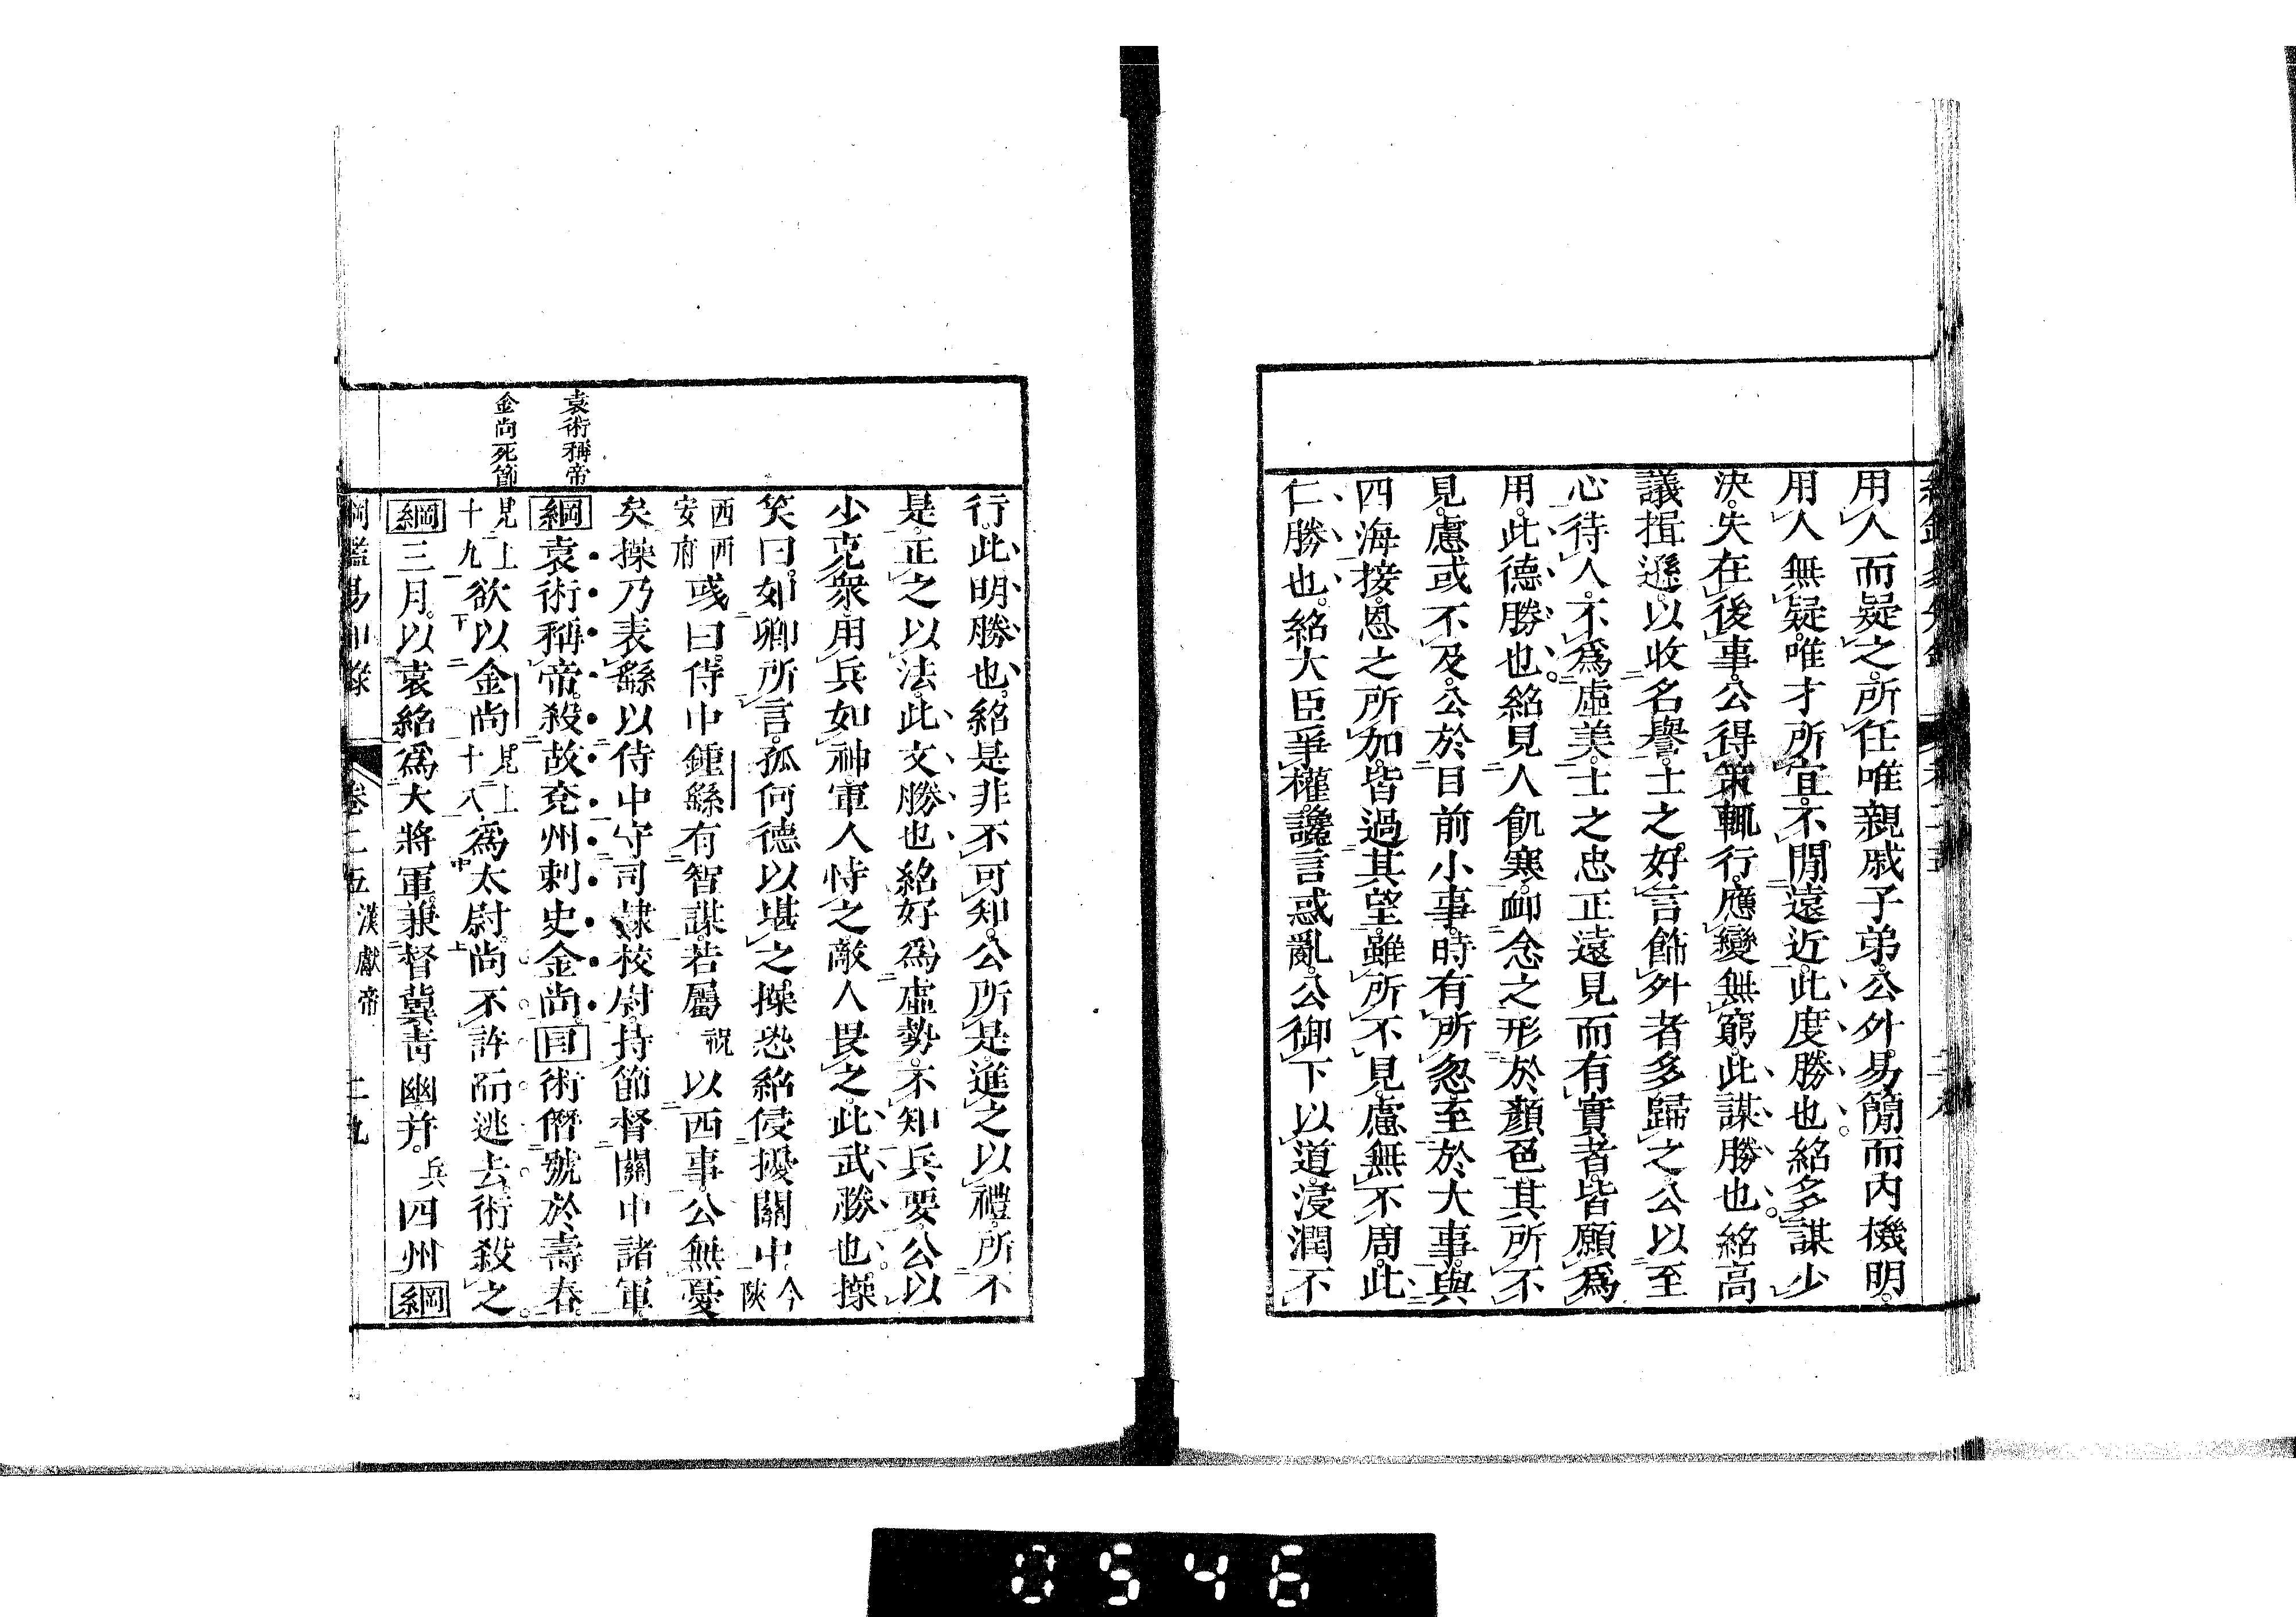 用人而疑之。所任唯親戚子弟。公外易簡而內機明。
用人無疑。唯才所宜。不閒遠近。此度勝也。紹多謀少
決。失在後事。公得策輒行。應變無窮。此謀勝也。紹高
議揖遜。以收名譽。士之好言飾外者多歸之。公以至
心待人。不爲虛美。士之忠正遠見而有實者。皆願爲
用。此德勝也。紹見人飢寒。卹念之形於顏色。其所不
見。慮或不及。公於目前小事。時有所忽。至於大事。與
四海接。恩之所加。皆過其望。雖所不見。慮無不周。此
仁勝也。紹大臣爭權。讒言惑亂。公御下以道。浸潤不
行。此明勝也。紹是非不可知。公所是。進之以禮。所不
是。正之以法。此文勝也。紹好爲虛勢。不知兵要。公以
少克衆。用兵如神。軍人恃之。敵人畏之。此武勝也。操
笑曰。如卿所言。孤何德以堪之。操恐紹侵擾關中。今陝
西西安府彧曰。侍中鍾繇有智謀。若屬祝以西事。公無憂
矣。操乃表繇以侍中守司隸校尉。持節督關中諸軍。
袁術稱帝
綱袁術稱帝。殺故兗州刺史金尚。目術僭號於壽春。
金尚死節
見上十九下欲以金尚見上十八中爲太尉。尚不許而逃去。術殺之。
綱三月。以袁紹爲大將軍。兼督冀靑幽幷。兵四州綱
綱鑑易知錄 卷二五 漢獻帝 二九
0546